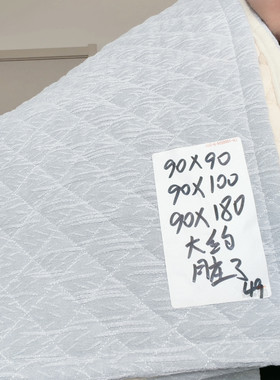 90X90
90X100
90X180
大约
用在了
49